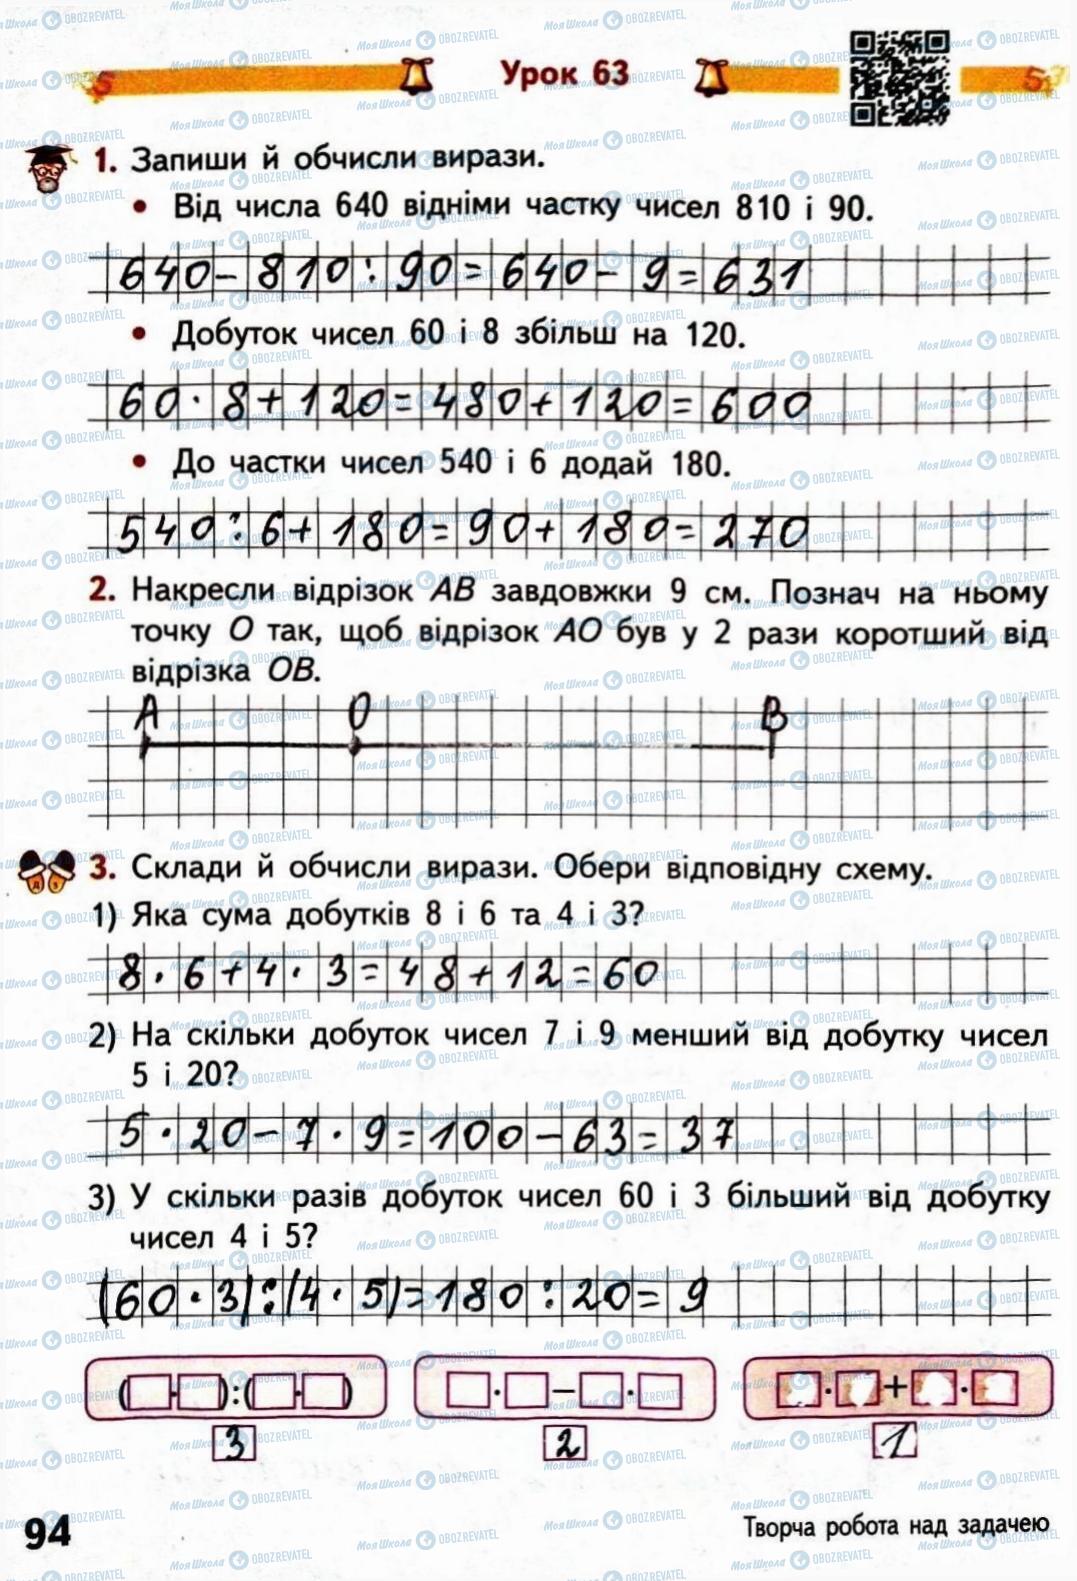 Урок 63
1. Запиши й обчисли вирази.
• Від числа 640 відніми частку чисел 810 і 90.
640 - 810 : 90 = 640 - 9 = 631
• Добуток чисел 60 і 8 збільш на 120.
60 · 8 + 120 = 480 + 120 = 600
• До частки чисел 540 і 6 додай 180.
540 : 6 + 180 = 90 + 180 = 270
2. Накресли відрізок АВ завдовжки 9 см. Познач на ньому
точку О так, щоб відрізок АО був у 2 рази коротший від
відрізка ОВ.
А О В
3. Склади й обчисли вирази. Обери відповідну схему.
1) Яка сума добутків 8 і 6 та 4 і 3?
8 · 6 + 4 · 3 = 48 + 12 = 60
2) На скільки добуток чисел 7 і 9 менший від добутку чисел
5 і 20?
5 · 20 - 7 · 9 = 100 - 63 = 37
3) У скільки разів добуток чисел 60 і 3 більший від добутку
чисел 4 і 5?
(60 · 3) : (4 · 5) = 180 : 20 = 9
(□·□):(□·□) □·□−□·□ □·□+□·□
3 2 1
94 Творча робота над задачею
МояШкола OBOZREVATEL